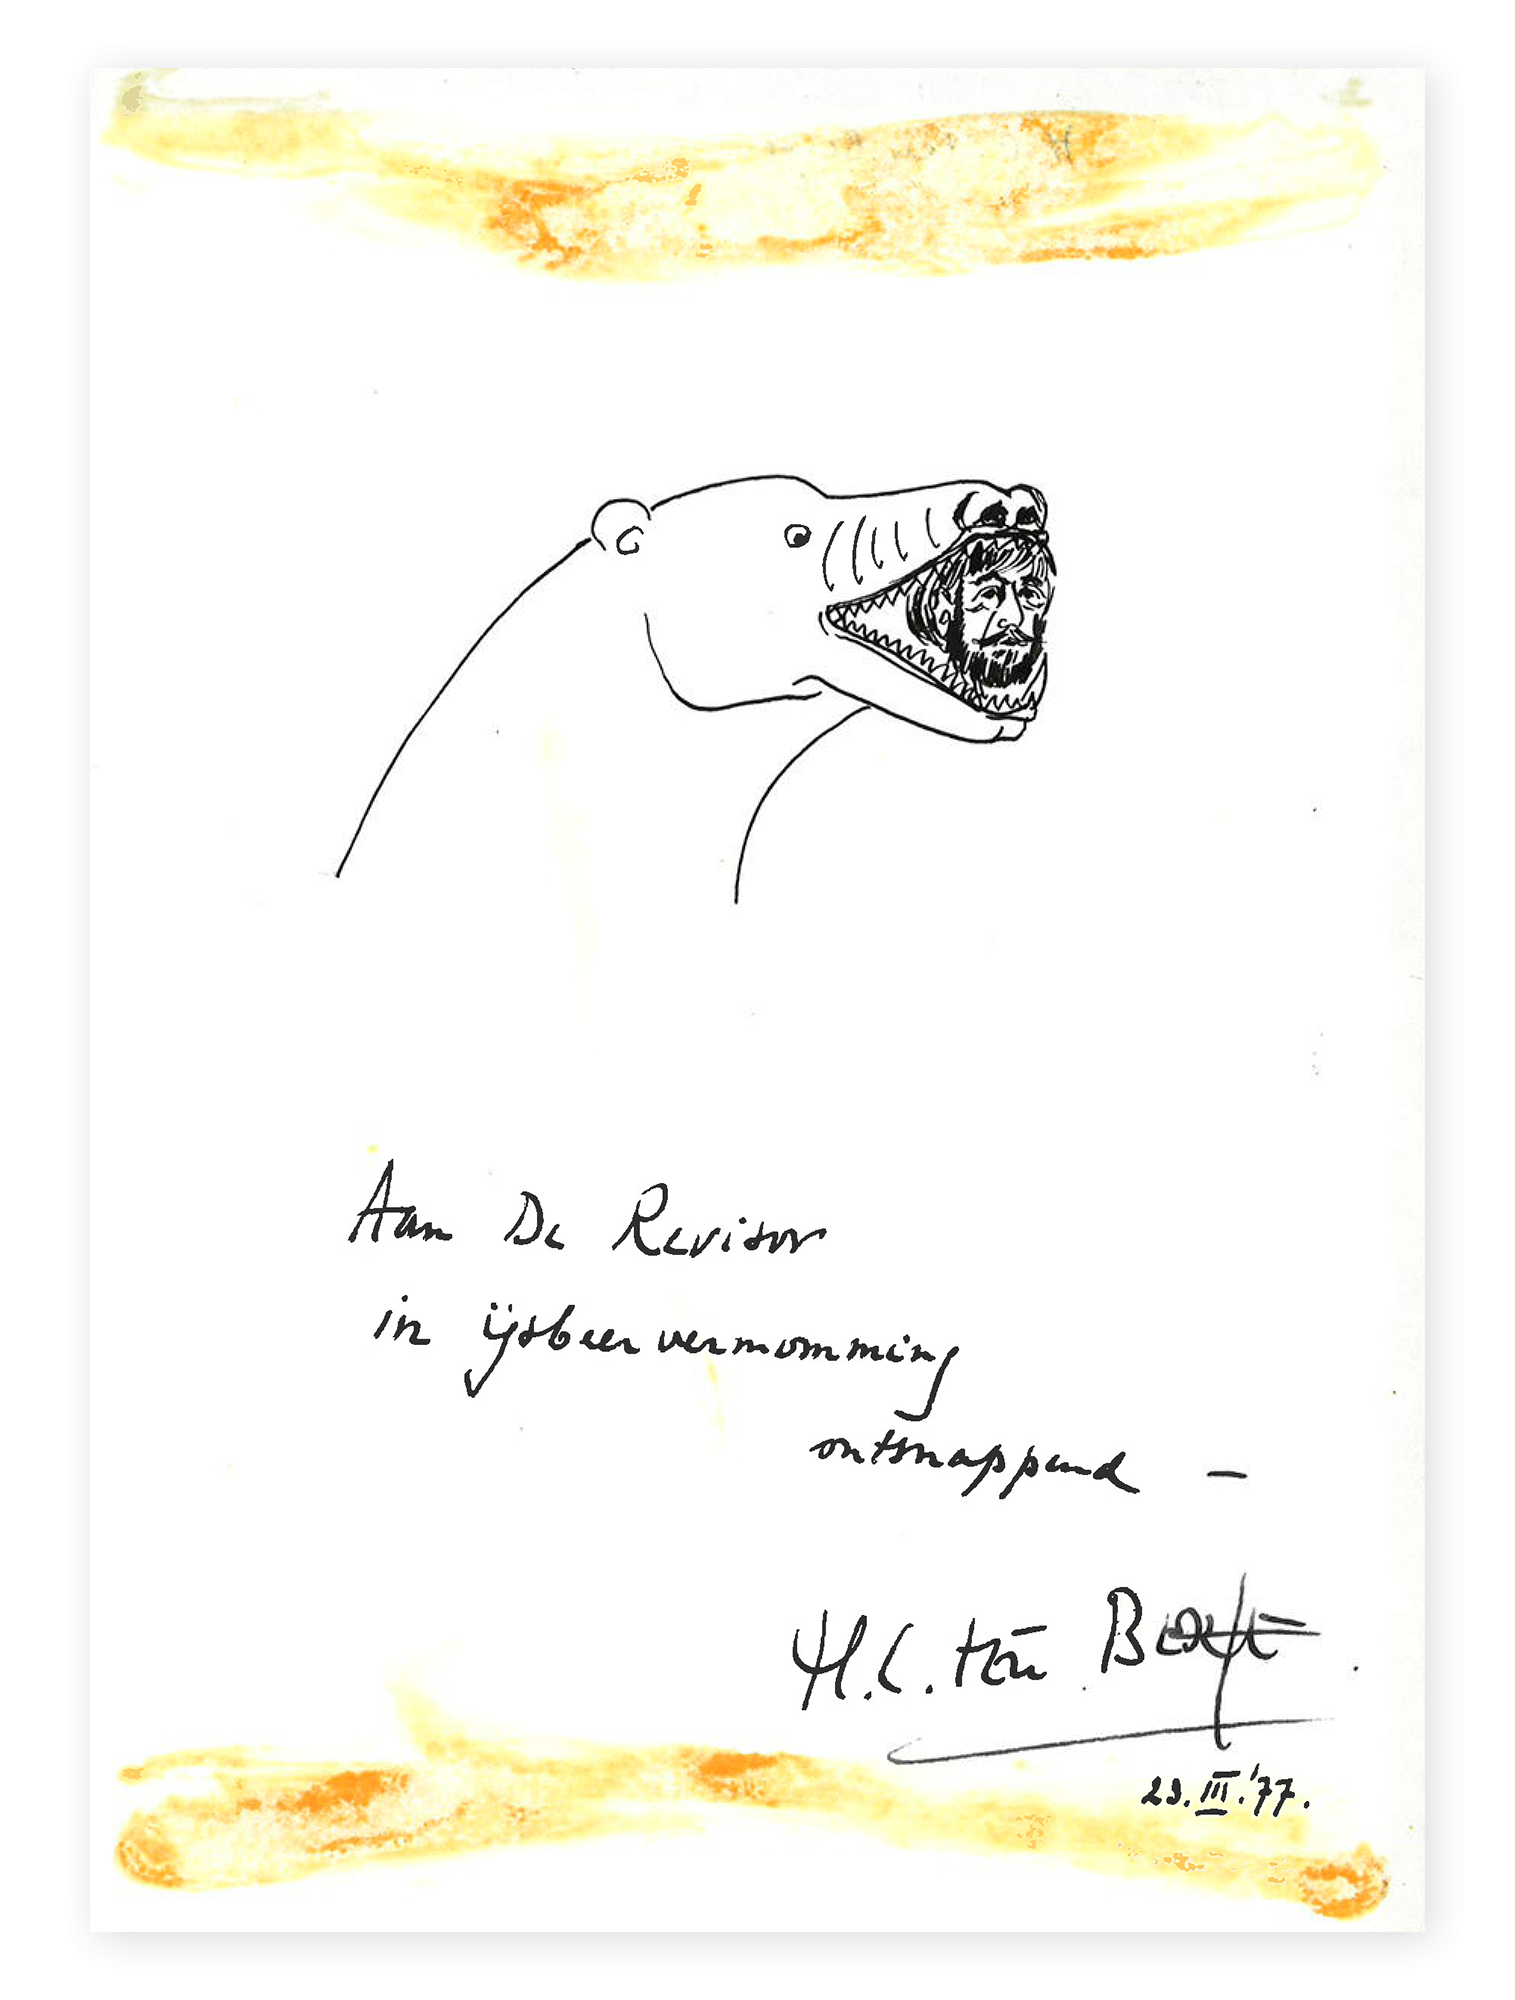 Aan De Revisor
in ijsbeervermomming
ontsnappend —
H.C. ten Berge
29.III.'77.